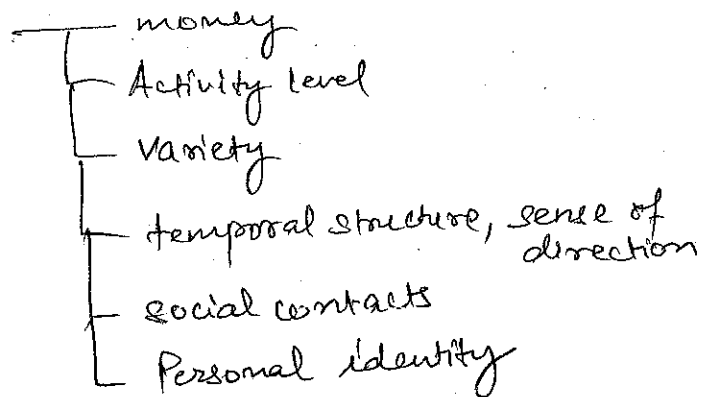 money
Activity level
variety
temporal structure, sense of
direction
social contacts
Personal identity